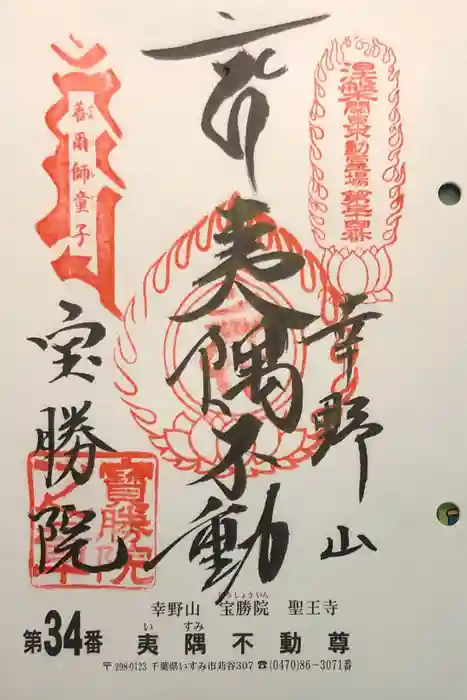 涅槃 關東不動霊場 第三十四番
幸野山
夷隅不動
善爾師童子
宝勝院
寶勝院
幸野山 宝勝院 聖王寺
ほうしょういん
第34番 夷隅不動尊
い すみ
〒298-0123 千葉県いすみ市苅谷307 ☎(0470)86-3071番